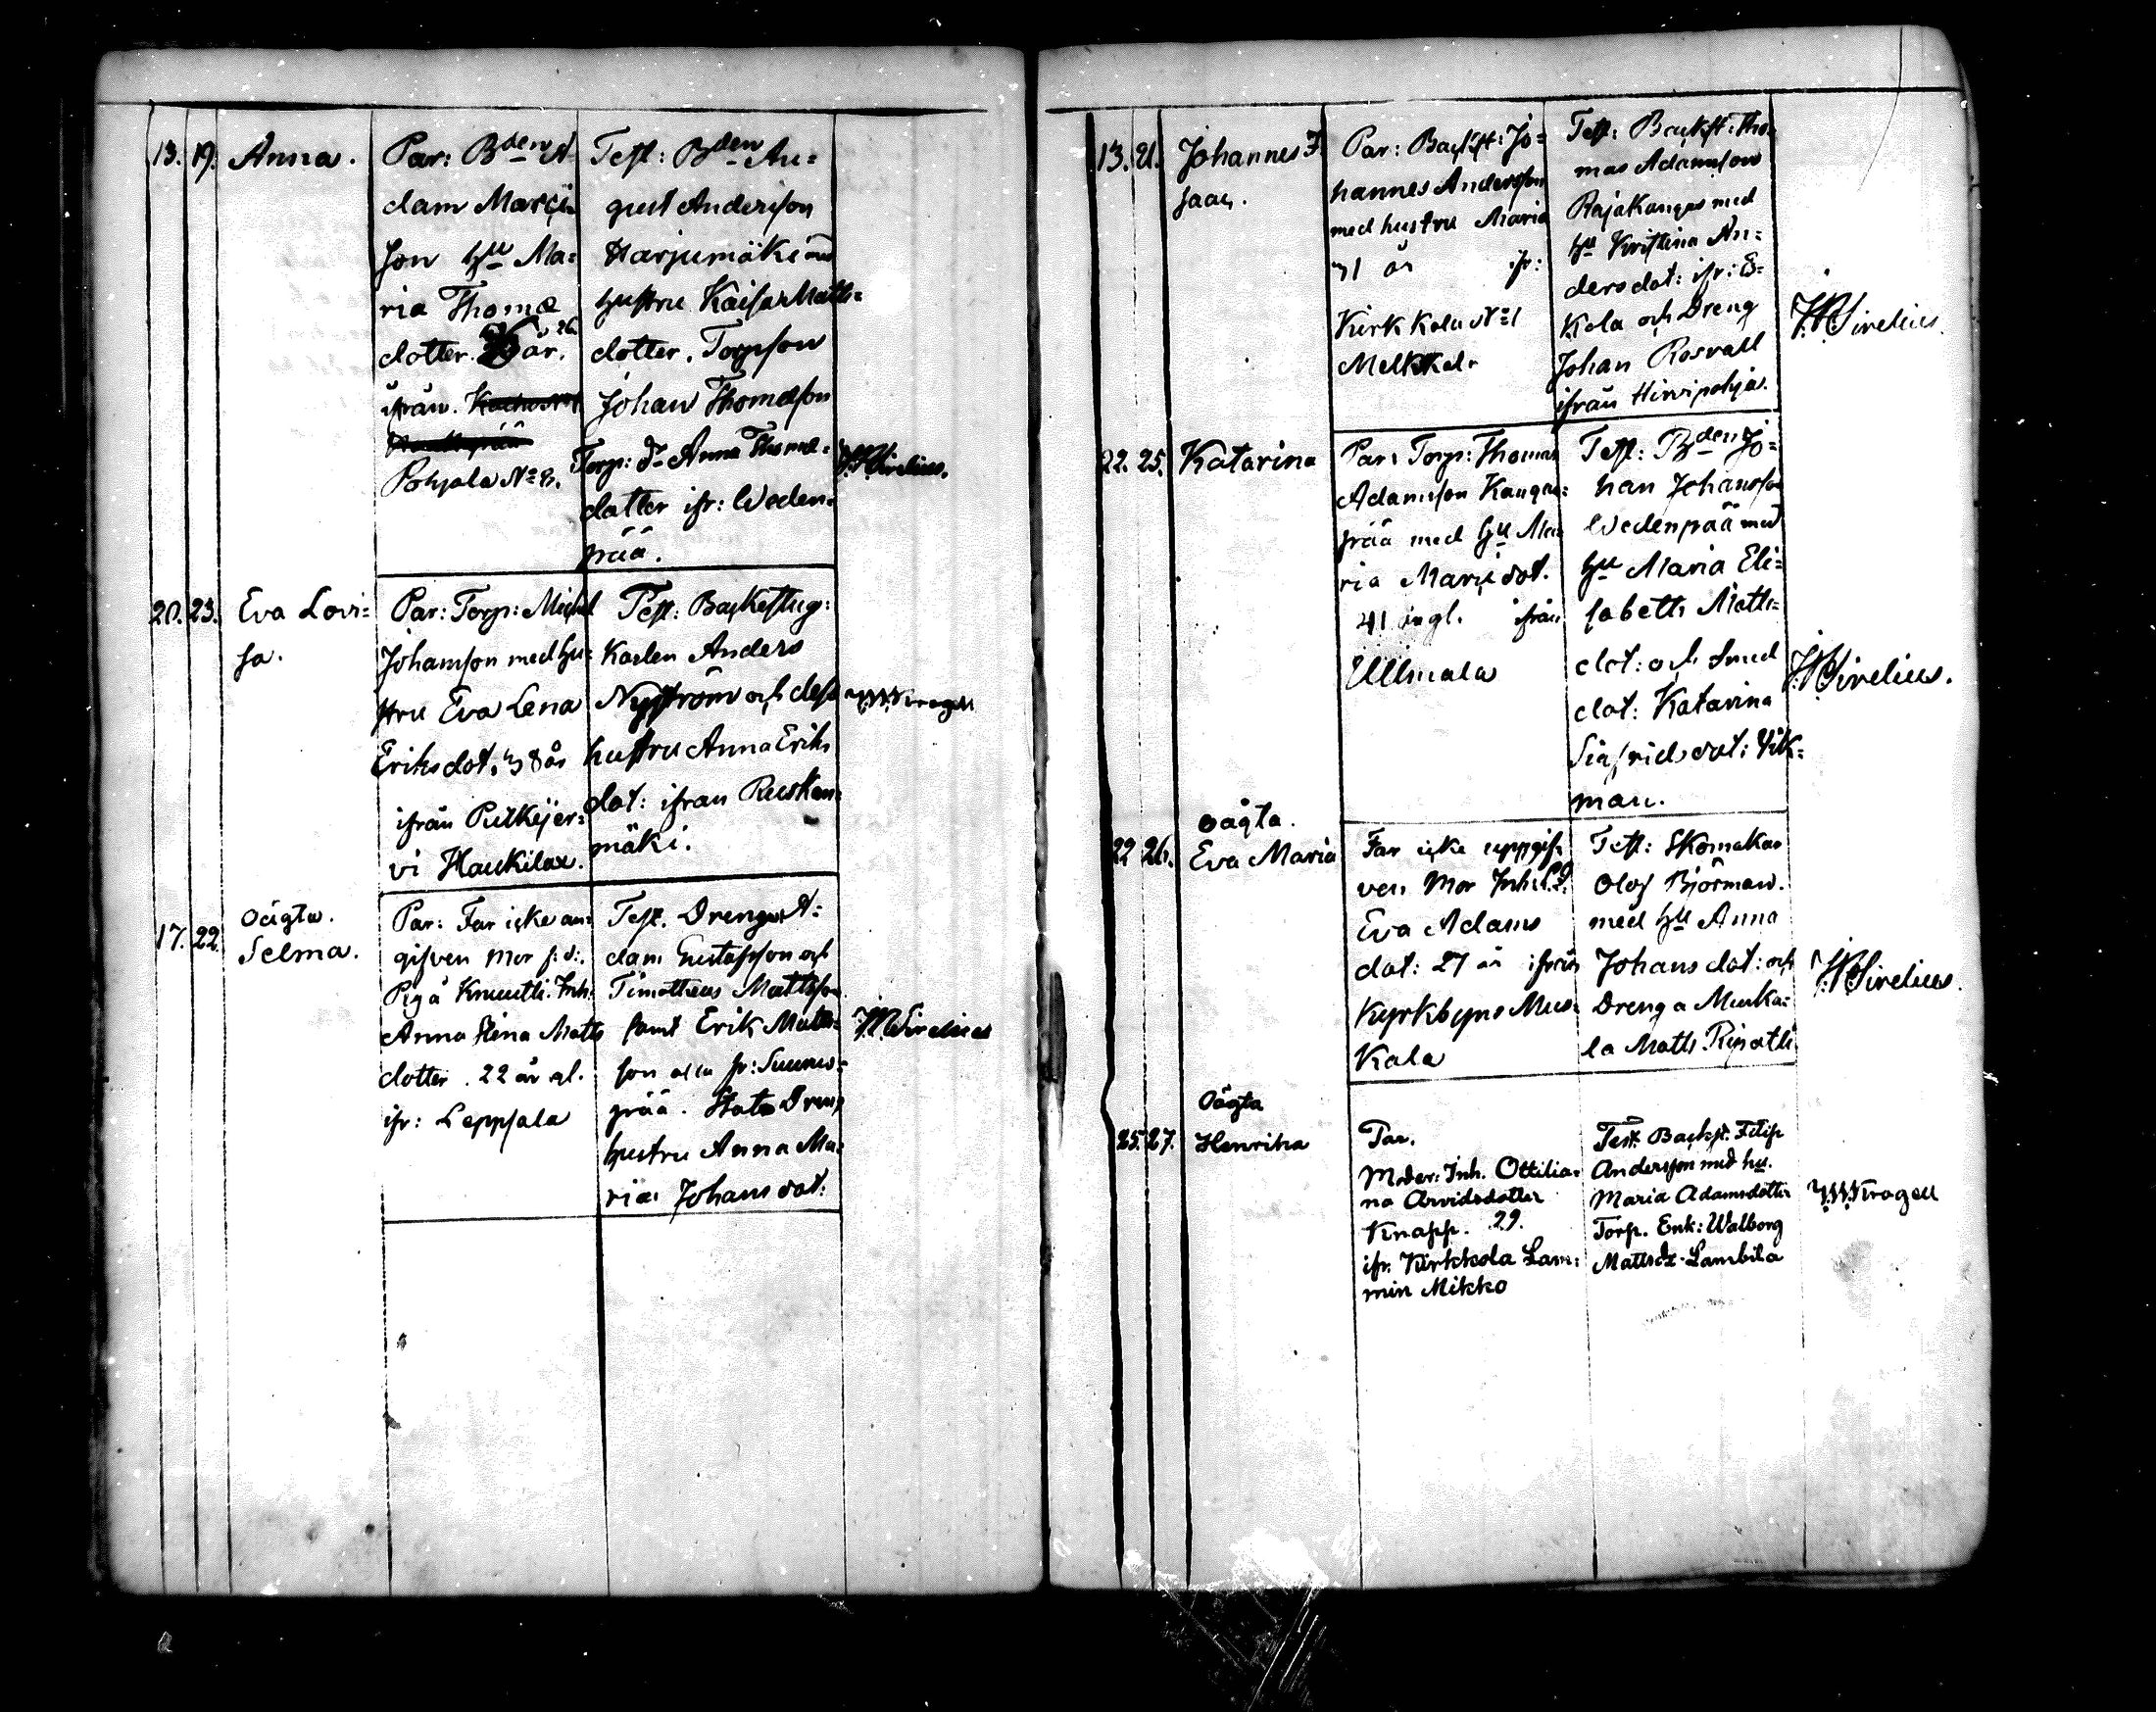 13. 19. Anna.
Par: Bden A-
dam Marci
son hu Ma=
ria Thomæ
dotter. år. 26
ifrån.
Pohjola No 8.
Test: Bden Au=
gust Andersson
Harjumäki med
hustru Kaisa Matts=
dotter. Torpson
Johan Thomasson
Torp: dr Anna Thomæ=
datter ifr: Weden=
pää.
Sirelius.
20. 23. Eva Lovi=
sa.
Par: Torp: Michel
Johansson med hu=
stru Eva Lena
Eriksdot. 38 år
ifrån Pitkejer=
vi Haukilax.
Test: Backestugu:
Karlen Anders
Nyström och dess
hustru Anna Eriks
dot: ifran Ruskan=
mäki.
Krogell
17. 22. Oägta.
Selma.
Par: Far icke an=
gifven Mor f: d:
Piga Knuutti. Inh:
Anna Stina Matts
dotter. 22 år gl.
ifr: Leppsala
Test. Drengar A=
dam Gustafsson och
Timotheus Mattsson
samt Erik Matts=
son alla fr: Summs=
pää. Stats Dreng
hustru Anna Ma=
ria Johans dot:
Sirelius
13. 21. Johannes I
saac.
Par: Backst: Jo=
hannes Andersson
med hustru Maria
41 år ifr:
Kirk Kola No 1
Melkkol.
Test: Backst: Tho=
mas Adamsson
RajaKangas med
hu Kristina An=
dersdot: ifr:
Kola och Dreng
Johan Rosvall
ifrån Hirvipohja.
Sirelius.
22. 25. Katarina
Par: Torp: Thomas
Adamsson Kangas=
pää med hu Ma=
ria Marci dot.
41 år gl. ifrån
Ullmala
Test: Bden Jo=
han Johansson
Wedenpää med
hu Maria Eli=
sabeth Matts=
dot: och Smed
dot: Katarina
Sigfrids dot: Vik=
man.
Sirelius.
22 26. oägta.
Eva Maria
Far icke uppgif=
ven Mor Inh:
Eva Adams
dot: 27 år ifrån
Kyrkbyns Mus=
Kala
Test: Skomakar
Olof Björman.
med hu Anna
Johans dot: och
Dreng a Muska=
la Matts Ripatti
Sirelius.
25. 27. Oägta
Henrika
Par.
Moder: Inh. Ottilia=
na Arvidsdotter
Knapp. 29.
ifr. Kirkkola Lam=
min Mikko
Test. Backst. Filip
Andersson med hu.
Maria Adamsdotter
Torp. Enk: Walborg
Mattsdr. Lambila
Krogell